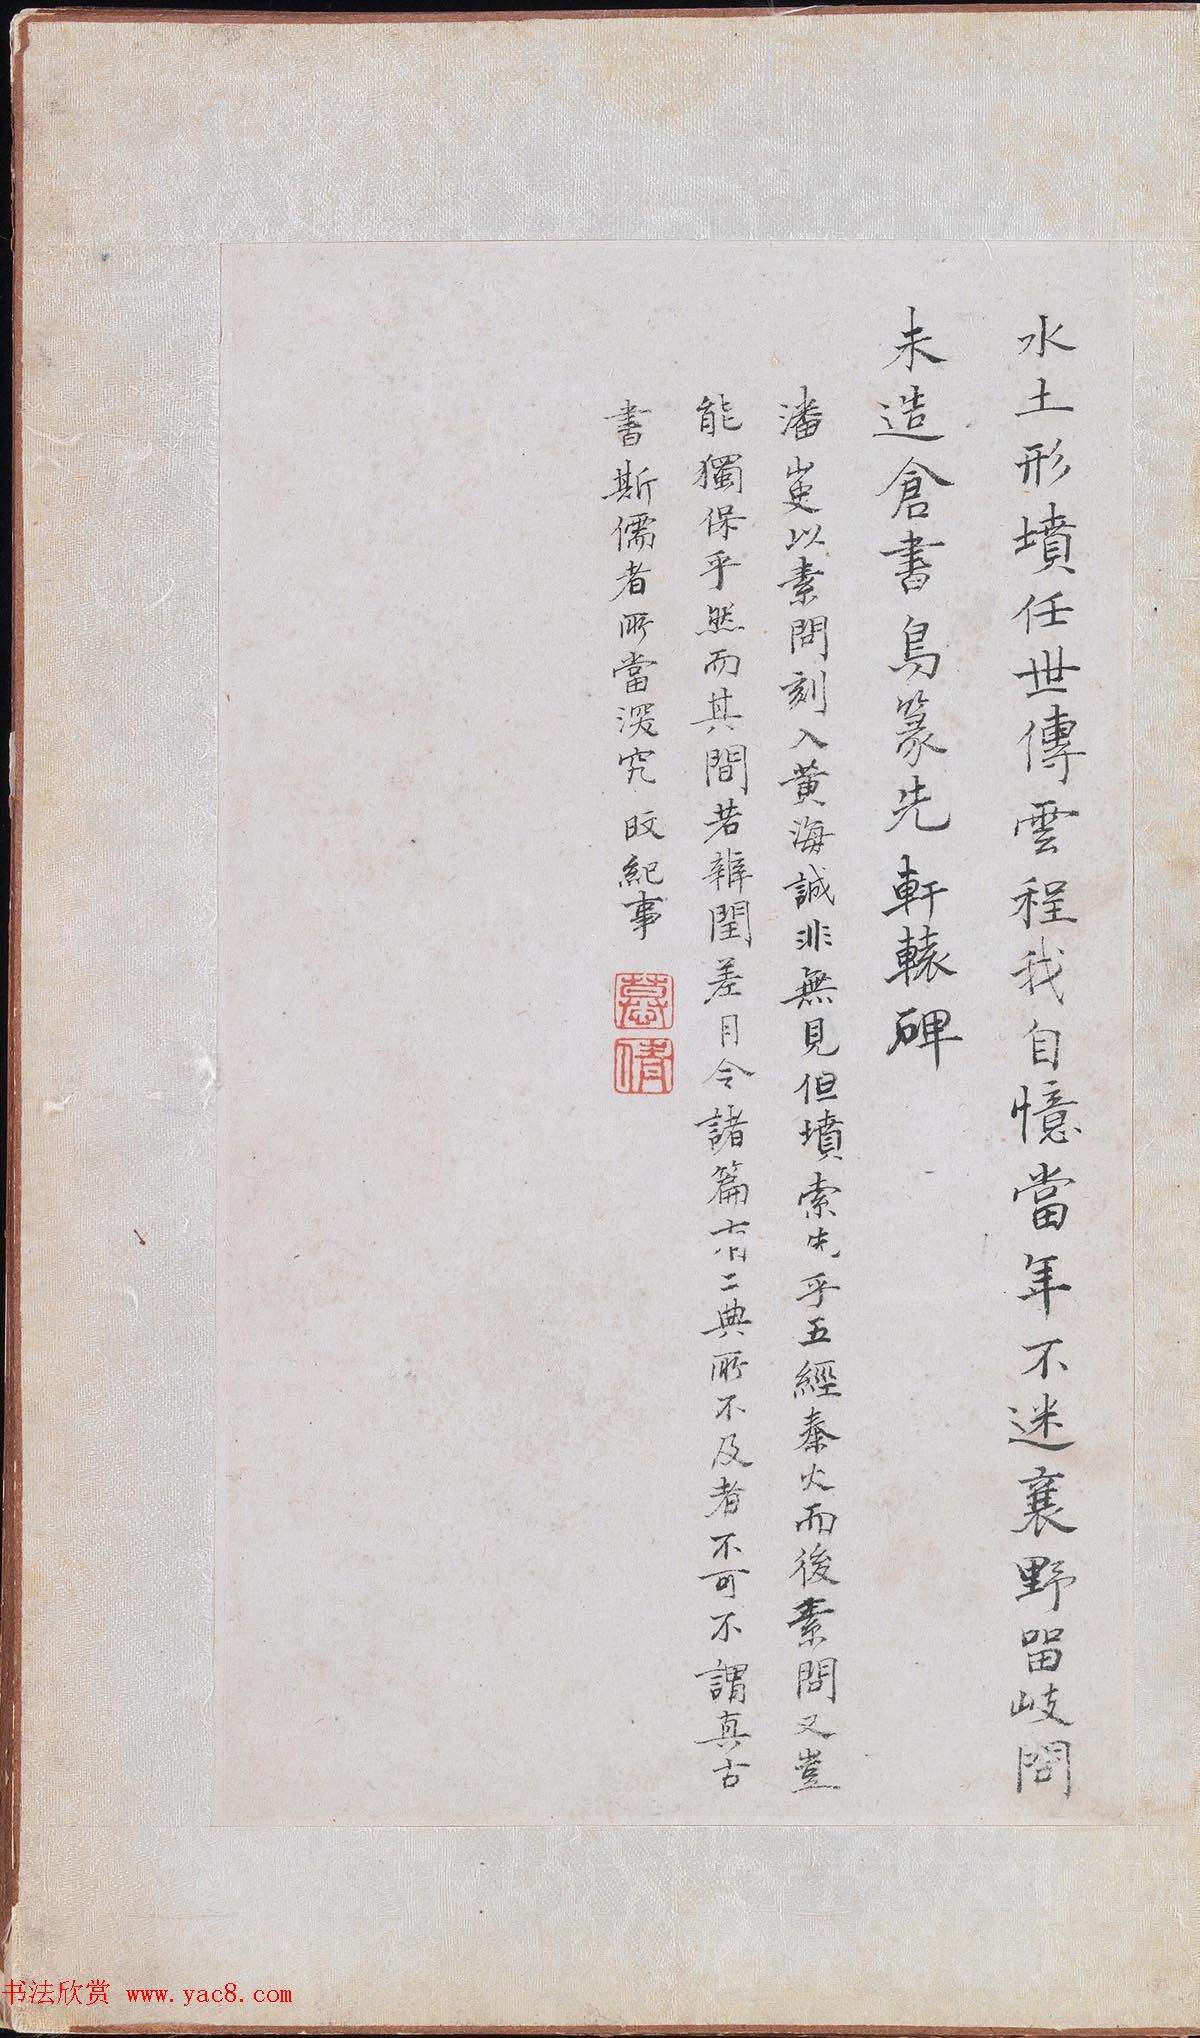 水土形墳任世傳雲程我自憶當年不迷襄野留岐問
未造倉書鳥篆先 軒轅碑
潘嵗以素問刻入黄海誠非無見但墳索先乎五經秦火而後素問又豈
能獨保乎然而其間若辨閏差月令諸篇有二典所不及者不可不謂真古
書斯儒者所當深究 旼紀事
书法欣赏 www.yac8.com